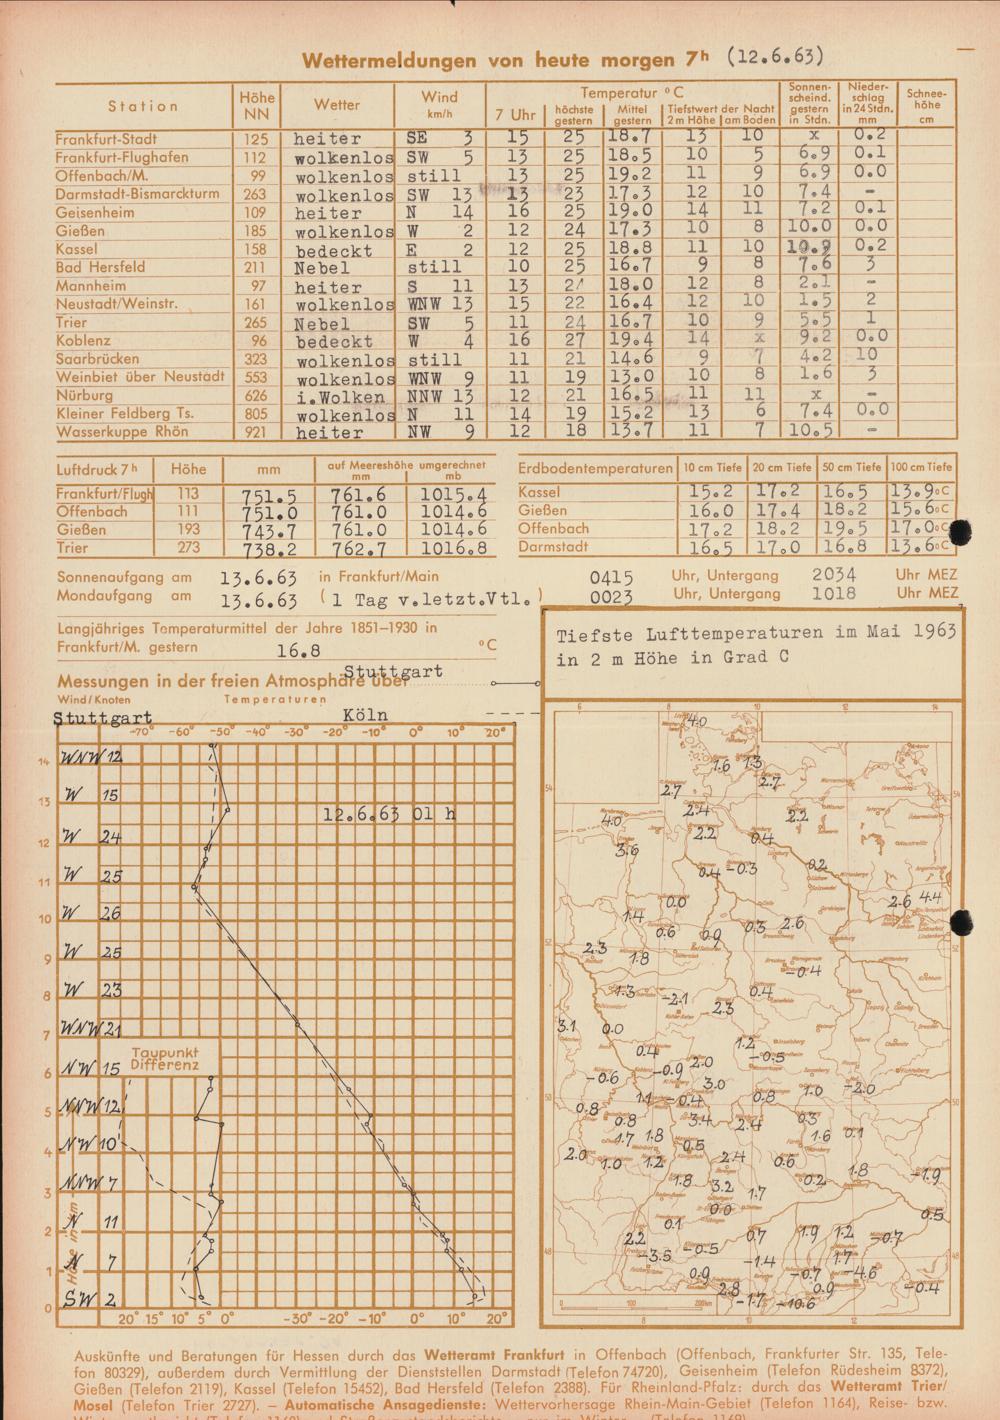 Wettermeldungen von heute morgen 7h (12.6.63)
Station Höhe NN Wetter Wind km/h Temperatur °C Sonnenscheind. gestern in Stdn. Niederschlag in 24 Stdn. mm Schneehöhe cm
7 Uhr höchste gestern Mittel gestern Tiefstwert der Nacht 2 m Höhe am Boden
Frankfurt-Stadt 125 heiter SE 3 15 25 18.7 13 10 x 0.2
Frankfurt-Flughafen 112 wolkenlos SW 5 13 25 18.5 10 5 6.9 0.1
Offenbach/M. 99 wolkenlos still 13 25 19.2 11 9 6.9 0.0
Darmstadt-Bismarckturm 263 wolkenlos SW 13 13 23 17.3 12 10 7.4 -
Geisenheim 109 heiter N 14 16 25 19.0 14 11 7.2 0.1
Gießen 185 wolkenlos W 2 12 24 17.3 10 8 10.0 0.0
Kassel 158 bedeckt E 2 12 25 18.8 11 10 10.9 0.2
Bad Hersfeld 211 Nebel still 10 25 16.7 9 8 7.6 3
Mannheim 97 heiter S 11 13 24 18.0 12 8 2.1 -
Neustadt/Weinstr. 161 wolkenlos WNW 13 15 22 16.4 12 10 1.5 2
Trier 265 Nebel SW 5 11 24 16.7 10 9 5.5 1
Koblenz 96 bedeckt W 4 16 27 19.4 14 x 9.2 0.0
Saarbrücken 323 wolkenlos still 11 21 14.6 9 7 4.2 10
Weinbiet über Neustadt 553 wolkenlos WNW 9 11 19 13.0 10 8 1.6 3
Nürburg 626 i.Wolken NNW 13 12 21 16.5 11 11 x -
Kleiner Feldberg Ts. 805 wolkenlos N 11 14 19 15.2 13 6 7.4 0.0
Wasserkuppe Rhön 921 heiter NW 9 12 18 13.7 11 7 10.5 -
Luftdruck 7h Höhe mm auf Meereshöhe umgerechnet mm mb
Frankfurt/Flugh 113 751.5 761.6 1015.4
Offenbach 111 751.0 761.0 1014.6
Gießen 193 743.7 761.0 1014.6
Trier 273 738.2 762.7 1016.8
Erdbodentemperaturen 10 cm Tiefe 20 cm Tiefe 50 cm Tiefe 100 cm Tiefe
Kassel 15.2 17.2 16.5 13.9°C
Gießen 16.0 17.4 18.2 15.6°C
Offenbach 17.2 18.2 19.5 17.0°C
Darmstadt 16.5 17.0 16.8 13.6°C
Sonnenaufgang am 13.6.63 in Frankfurt/Main 0415 Uhr, Untergang 2034 Uhr MEZ
Mondaufgang am 13.6.63 ( 1 Tag v.letzt.Vtl. ) 0023 Uhr, Untergang 1018 Uhr MEZ
Langjähriges Temperaturmittel der Jahre 1851–1930 in
Frankfurt/M. gestern 16.8 °C
Messungen in der freien Atmosphäre über Stuttgart
Wind/Knoten Temperaturen
Stuttgart Köln
-70° -60° -50° -40° -30° -20° -10° 0° 10° 20°
12.6.63 01 h
14 WNW 12
13 W 15
12 W 24
11 W 25
10 W 26
9 W 25
8 W 23
7 WNW 21
6 NW 15
5 NNW 12
4 NW 10
3 NNW 7
2 N 11
1 N 7
0 SW 2
Höhe in km
Taupunkt
Differenz
20° 15° 10° 5° 0° -30° -20° -10° 0° 10° 20°
Tiefste Lufttemperaturen im Mai 1963
in 2 m Höhe in Grad C
6 8 10 12 14
4.0
1.6 1.3
2.7 2.7
2.4 2.2
4.0 2.2 0.4
3.6
0.4 -0.3 0.2
0.0 2.6 4.4
1.4 0.6 0.9 0.3 2.6
2.3 1.8 -0.4
1.3 -2.1 2.3 0.4
3.1 0.0
0.4 1.2 -0.5
-0.6 -0.9 2.0
3.0 1.0 -2.0
0.8 1.1 -0.4 0.8
0.8 3.4 2.4 0.3
1.7 1.8 0.5 1.6 0.1
2.0 1.0 1.2 2.4 0.6
1.8 3.2 1.7 0.2 1.8 -1.9
0.0 0.5
0.1
2.2 0.7 1.9 1.2 -0.7
-3.5 -0.5 -1.4 1.7
0.9 -0.7 -4.6
2.8 0.9 -0.4
-1.7 -10.6
0 100 200km
8 10 12
Auskünfte und Beratungen für Hessen durch das Wetteramt Frankfurt in Offenbach (Offenbach, Frankfurter Str. 135, Tele-
fon 80329), außerdem durch Vermittlung der Dienststellen Darmstadt (Telefon 74720), Geisenheim (Telefon Rüdesheim 8372),
Gießen (Telefon 2119), Kassel (Telefon 15452), Bad Hersfeld (Telefon 2388). Für Rheinland-Pfalz: durch das Wetteramt Trier/
Mosel (Telefon Trier 2727). – Automatische Ansagedienste: Wettervorhersage Rhein-Main-Gebiet (Telefon 1164), Reise- bzw.